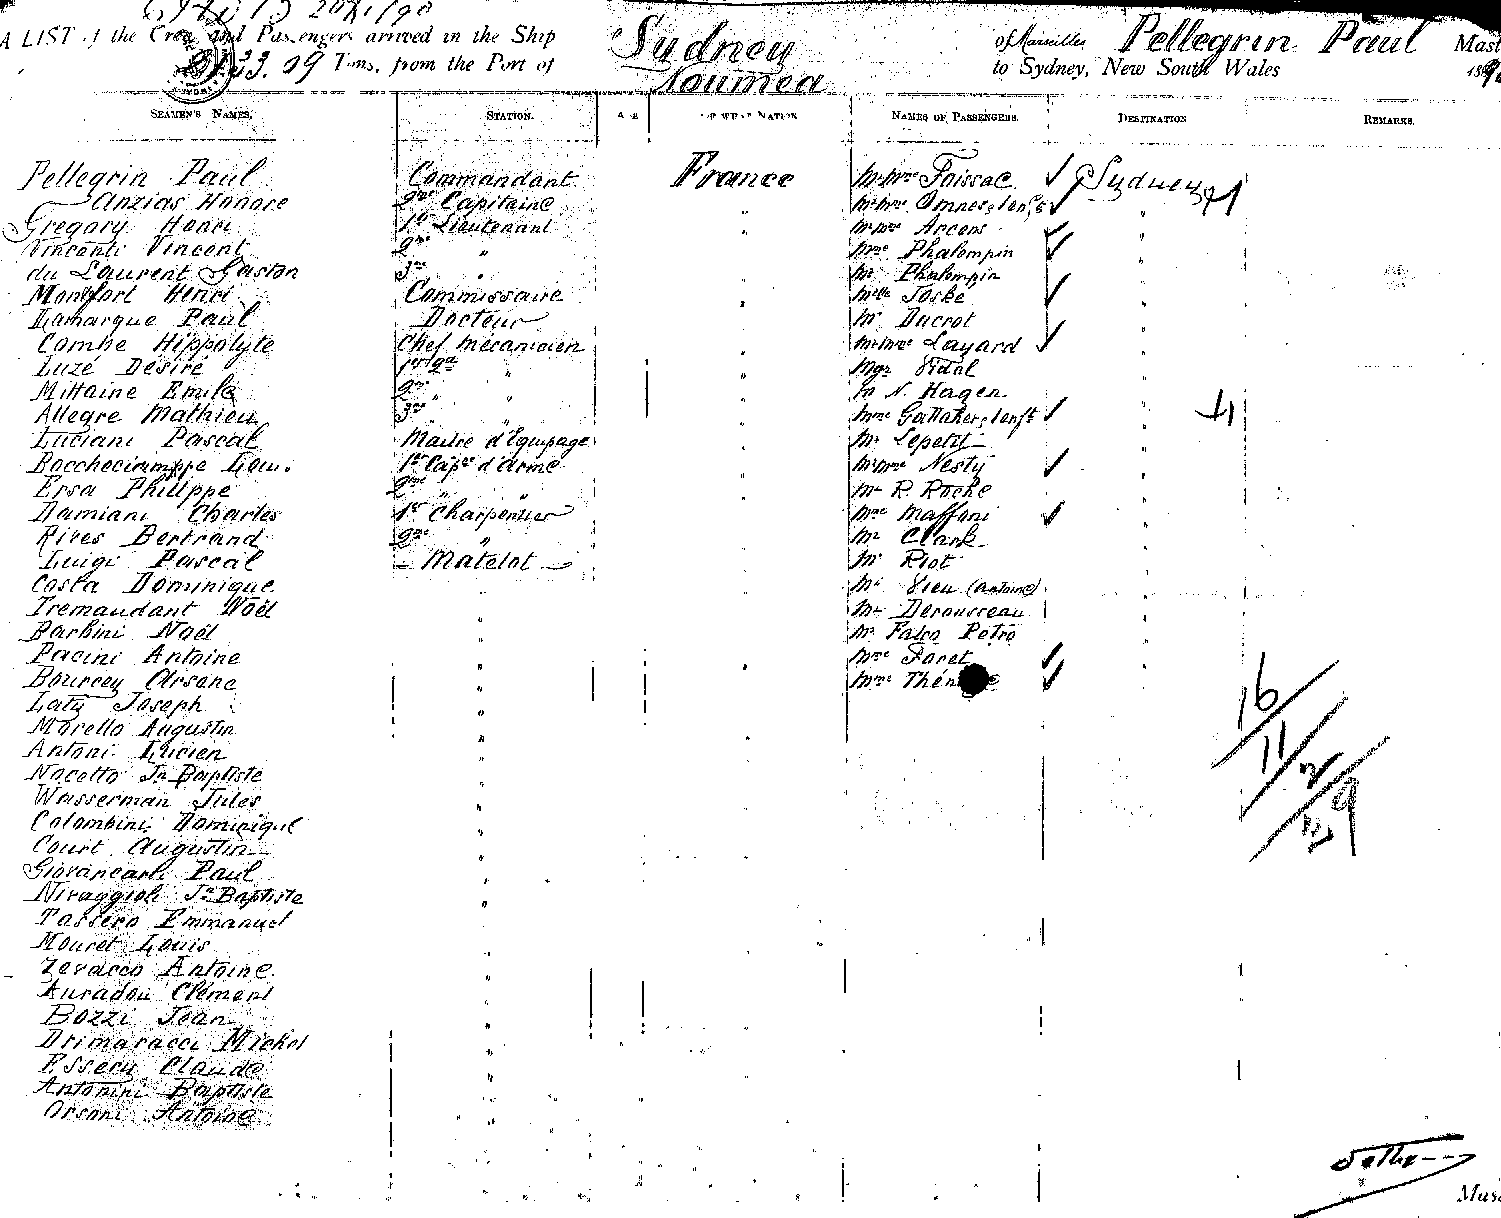 A LIST of the Crew and Passengers arrived in the Ship Sydney of Marseilles Pellegrin Paul Mast
3233.09 Tons, from the Port of Noumea to Sydney, New South Wales 189
SEAMEN'S NAMES. STATION. AGE OF WHAT NATION NAMES OF PASSENGERS. DESTINATION REMARKS.
Pellegrin Paul Commandant France Mr Mme Foissac Sydney
Anzias Honoré 2me Capitaine " Mr Mme Omnes, 1 enft
Gregory Henri 1er Lieutenant " Mr Mme Arcens
Vincenti Vincent 2me " Mme Phalempin
du Laurent Gaston 3me " Mr Phalempin
Montfort Henri Commissaire " Melle Joske
Lamarque Paul Docteur " Mr Ducrot
Combe Hippolyte Chef mécanicien " Mr Mme Layard
Luzé Désiré " Mgr Vidal
Mittaine Emile 2me " " Mr N. Hagen
Allegre Mathieu 3me " Mme Gallaher, 1 enft
Luciani Pascal Maitre d'Equipage Mr Lepetit
Bocchecciamppe 1er Capne d'arme " Mr Mme Nesty
Ersa Philippe 2me " " Mr R. Roché
Damiani Charles 1er Charpentier " Mme Maffoni
Rives Bertrand 2me " Mr Clark
Luigi Pascal Matelot " Mr Riot
Costa Dominique " Mr Vieu (Antoine)
Tremaudant Noël " Mr Derousseau
Barbini Noël " Mr Falco Petro
Pacini Antoine " Mme Foret
Bourcey Arsane " Mme
Laty Joseph "
Morello Augustin "
Antoni Lucien "
Nocetto Jn Baptiste "
Wasserman Jules "
Colombini Dominique "
Court Augustin "
Giovancarli Paul "
Niraggioli Jn Baptiste "
Tassero Emmanuel "
Mouret Louis "
Zevacco Antoine "
Auradou Clément "
Bozzi Jean "
Drimaracci Michel "
Claude "
Antonini Baptiste "
Orsoni Antoine "
16
11
2
29